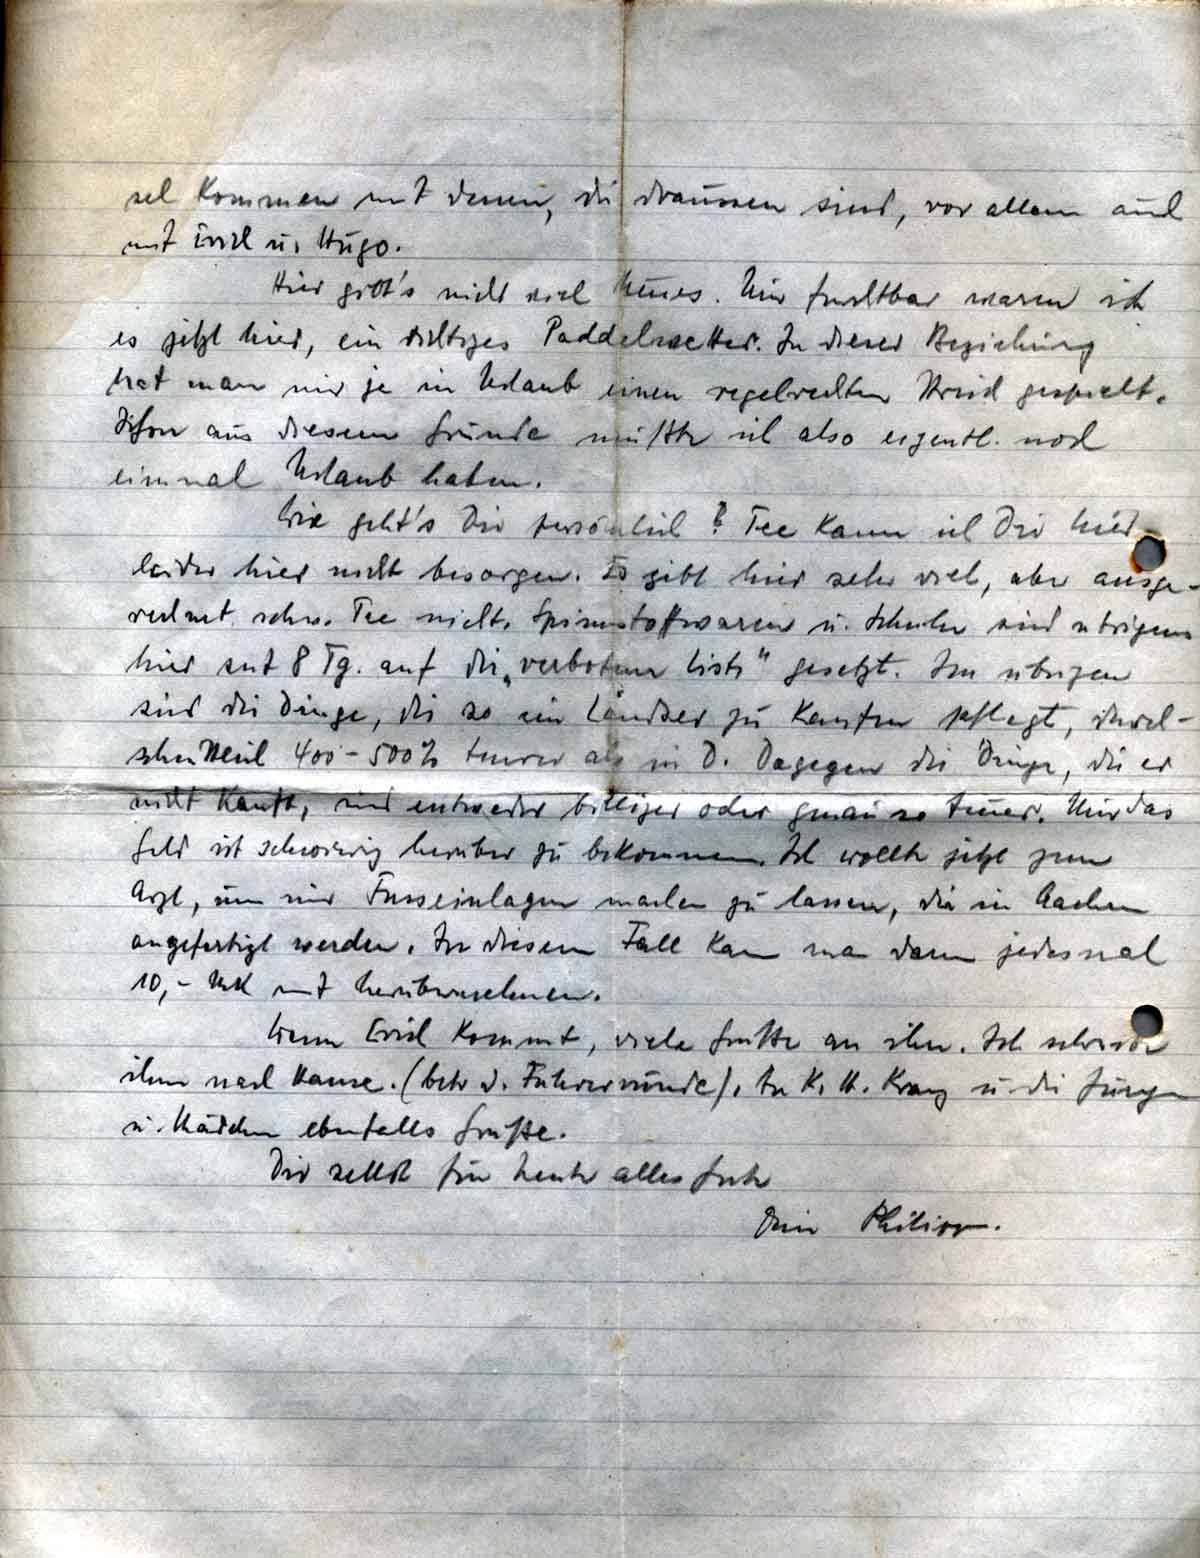 sel kommen mit denen, die draussen sind, vor allem auch
mit Erich u. Hugo.
Hier gibt's nicht viel Neues. Nur furchtbar warm ist
es jetzt hier, ein richtiges Paddelwetter. In dieser Beziehung
hat man mir ja im Urlaub einen regelrechten Streich gespielt.
Schon aus diesem Grunde müßte ich also eigentl. noch
einmal Urlaub haben.
Wie geht's Dir persönlich? Tee kann ich Dir hier
leider hier nicht besorgen. Es gibt hier sehr viel, aber ausge-
rechnet schw. Tee nicht. Spinnstoffwaren u. Schuhe sind übrigens
hier seit 8 Tg. auf die „verbotene Liste" gesetzt. Im übrigen
sind die Dinge, die so ein Landser zu kaufen pflegt, durch-
schnittlich 400-500% teurer als in D. Dagegen die Dinge, die er
nicht kauft, sind entweder billiger oder genau so teuer. Nur das
Geld ist schwierig herüber zu bekommen. Ich wollte jetzt zum
Arzt, um mir Fusseinlagen machen zu lassen, die in Aachen
angefertigt werden. In diesem Fall kann man dann jedesmal
10,- RM mit herübernehmen.
Wenn Erich kommt, viele Grüße an ihn. Ich schreibe
ihm nach Hause. (betr. d. Führerrunde). An K. H. Kranz u. die Jungen
u. Mädchen ebenfalls Grüße.
Dir selbst für heute alles Gute
Dein Philipp.